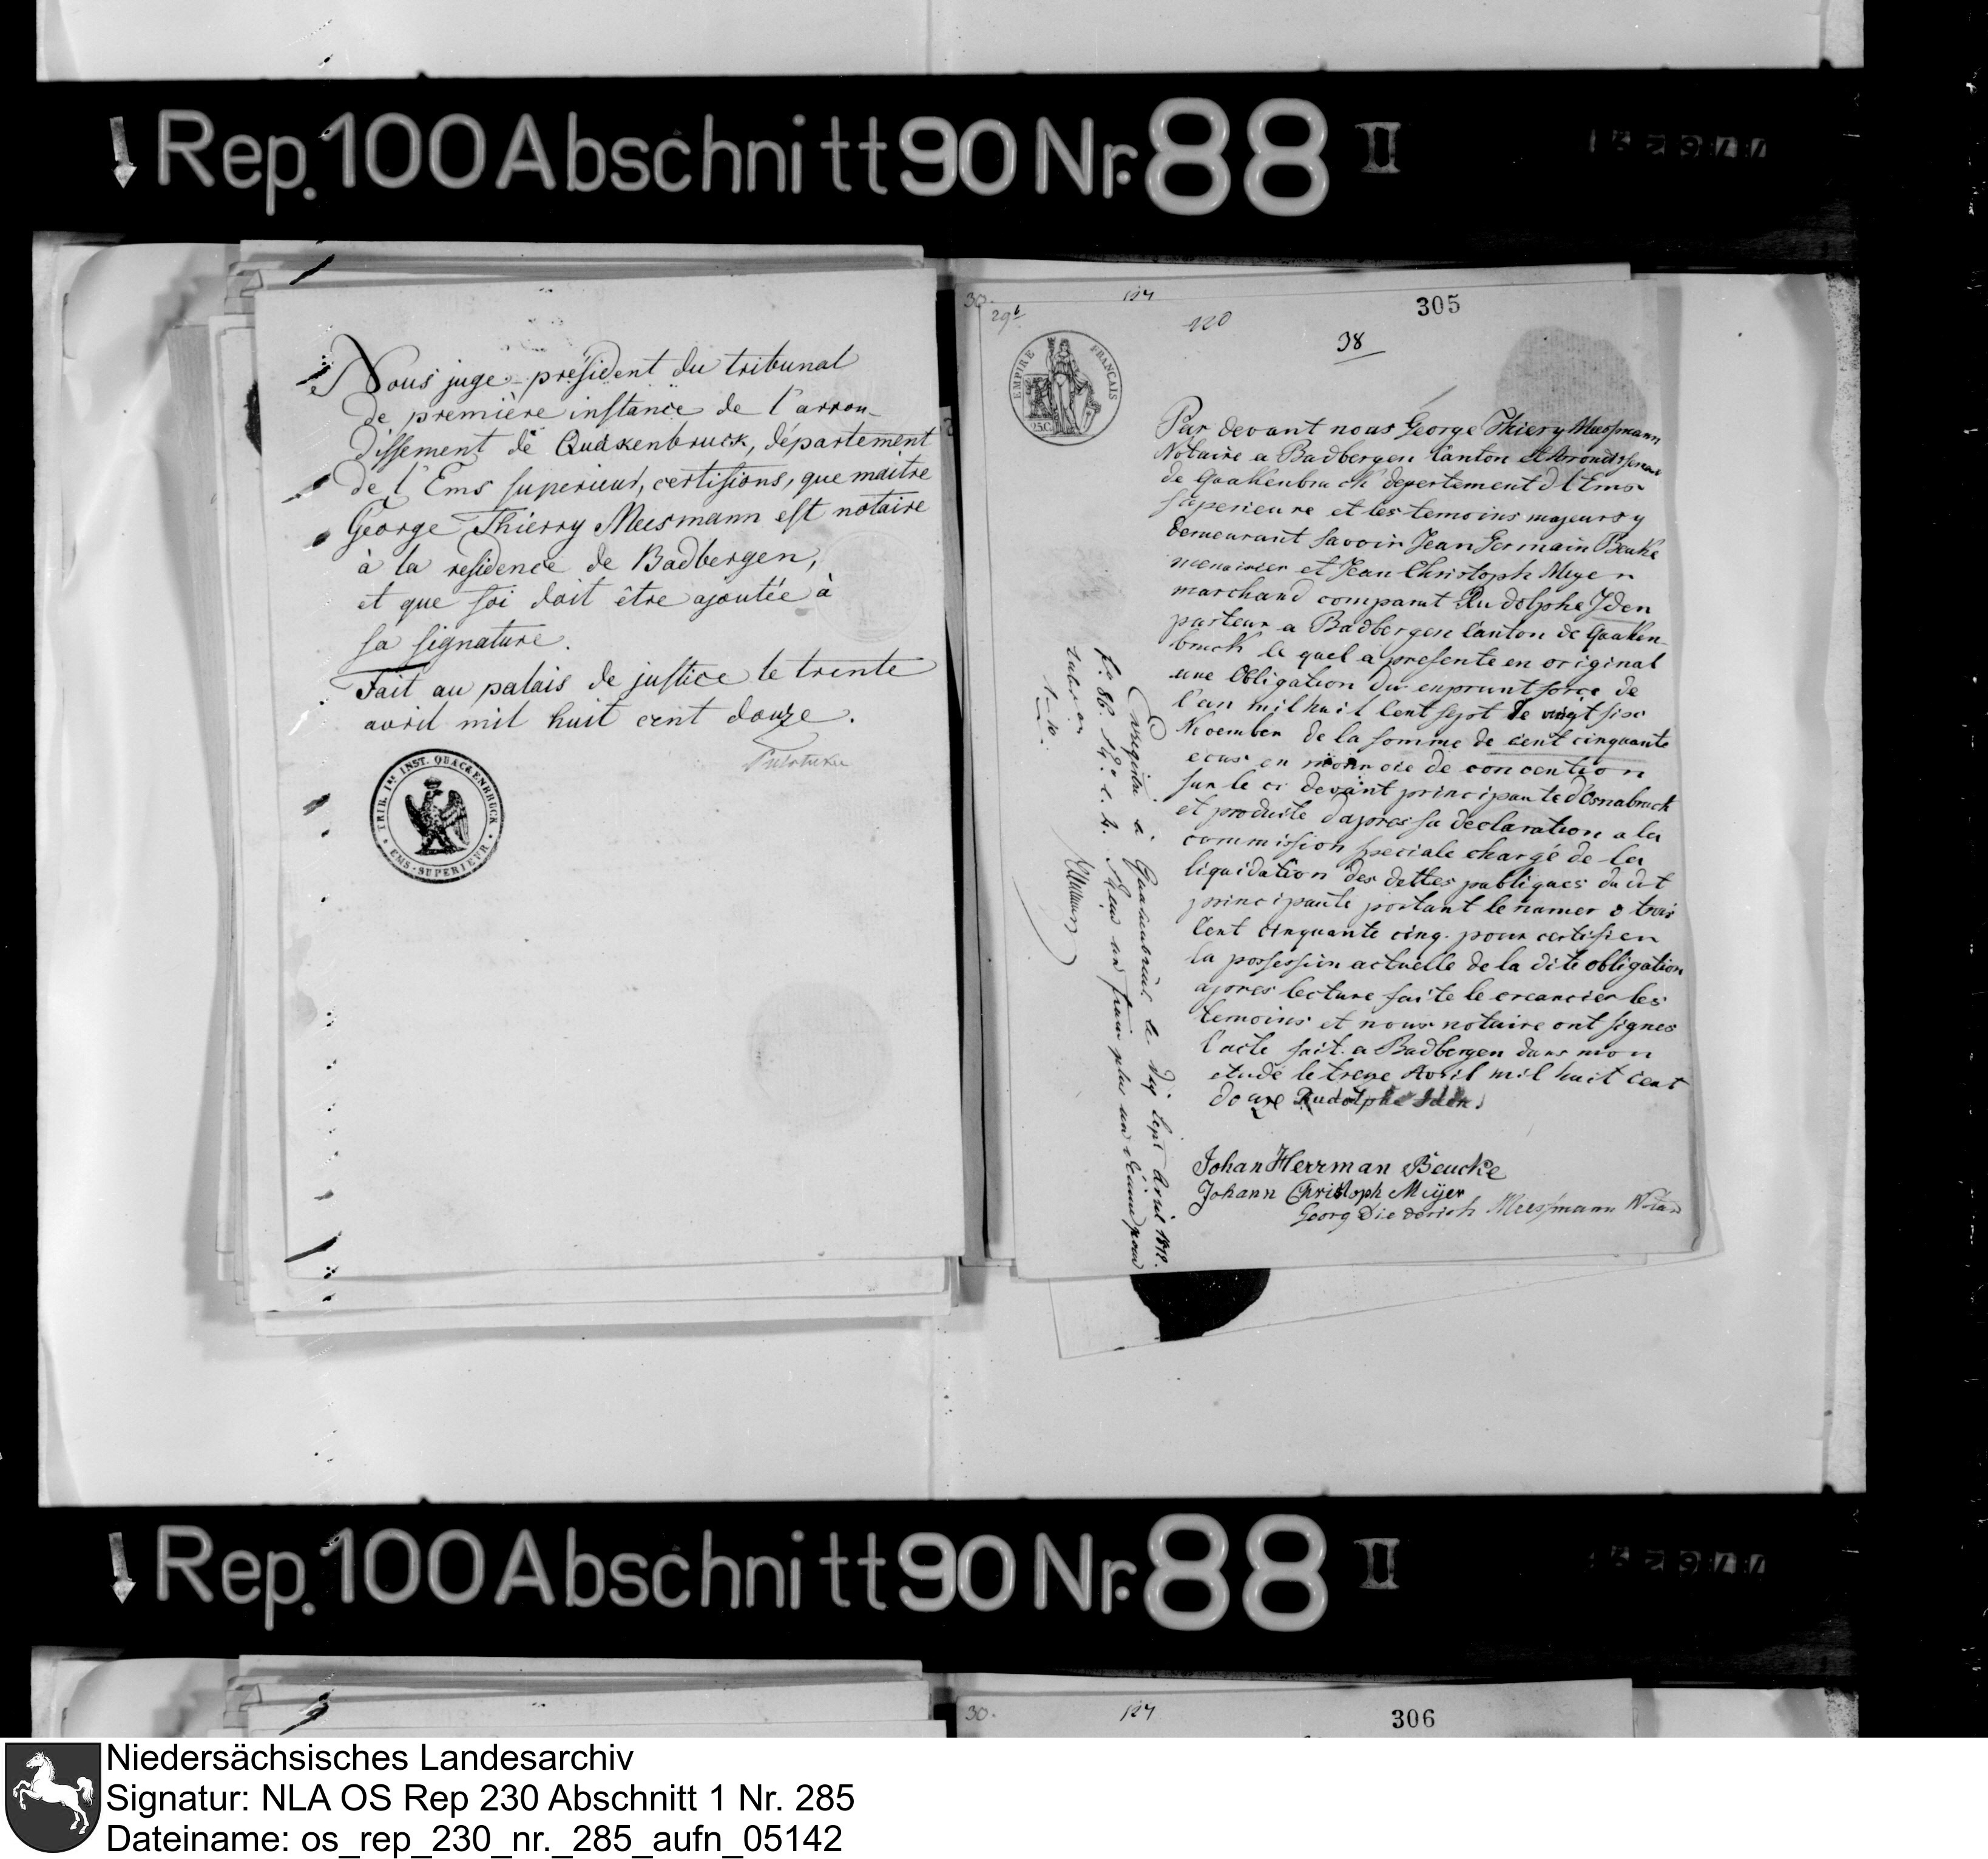 Rep. 100 Abschnitt 90 Nr. 88 II
Nous juge-président du tribunal
de première instance de l'arron-
dissement de Quakenbruck, département
de l'Ems superieur, certifions, que maitre
George Thierry Meesmann est notaire
à la residence de Badbergen,
et que foi doit être ajoutée à
sa signature.
Fait au palais de justice le trente
avril mil huit cent douze.
TRIB. 1re INST. QUACKENBRUCK
EMS-SUPERIEUR
30.
29b
127
120
305
38
EMPIRE FRANÇAIS
25C.
Par devant nous George Thiery Meesmann
Notaire a Badbergen Canton et Arrondissement
de Quakenbruck departement d l'Ems
superieure et les temoins majeurs y
demeurant savoir Jean Germain Beuke
menuisier et Jean Christoph Meyer
marchand comparut Rudolphe Iden
pasteur a Badbergen Canton de Quaken-
bruck le quel a presente en original
une Obligation du enprunt force de
l'an mil huit Cent sept le vingt six
November de la somme de cent cinquante
ecus en monnoie de convention
sur le ci devant principaute d'Osnabruck
et produite dapres sa declaration a la
commission speciale chargé de la
liquidation des dettes publiques du dit
principauté portant le numero trois
Cent cinquante cinq. pour certifier
la possession actuelle de la dite obligation
apres lecture faite le creancier les
temoins et nous notaire ont signes
l'acte fait a Badbergen dans mon
etude le treze Avril mil huit cent
douze Rudolphe Iden
Johan Herrman Beucke
Johann Christoph Meyer
Georg Diederich Meessmann Notar
Enregistré à Quakenbruck le dix sept Avril 1812.
f. 86. Reçu un franc plus un décime pour
subvon
1-10.
Rep. 100 Abschnitt 90 Nr. 88 II
30.
127
306
Niedersächsisches Landesarchiv
Signatur: NLA OS Rep 230 Abschnitt 1 Nr. 285
Dateiname: os_rep_230_nr._285_aufn_05142